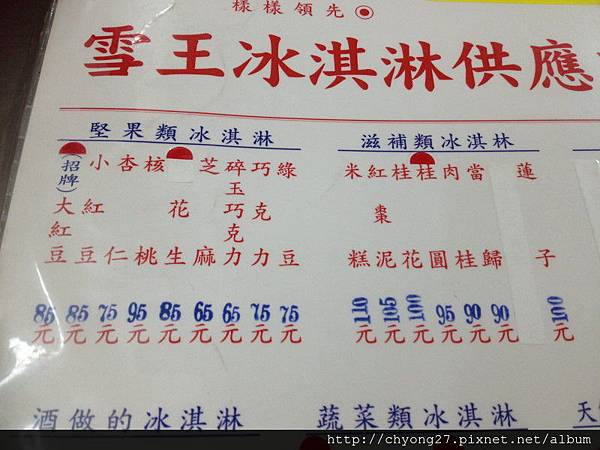 樣樣領先
雪王冰淇淋供應
堅果類冰淇淋
(招牌)大紅豆 85元
小紅豆 85元
杏仁 75元
核桃 95元
花生 85元
芝麻 65元
碎玉巧克力 65元
巧克力 75元
綠豆 75元
滋補類冰淇林
米糕 110元
紅棗泥 105元
桂花 100元
桂圓 95元
肉桂 90元
當歸 90元
蓮子 100元
酒做的冰淇淋
蔬菜類冰淇淋
天
http://chyong27.pixnet.net/album